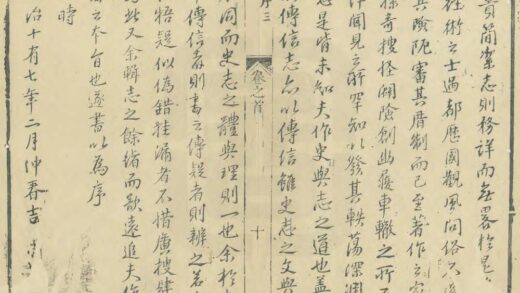 貴簡潔志則務詳而無畧於是
經術之士過都歷國觀風問俗
其險阨審其制而已至著作之
奇搜怪闡險創幽履車轍之所
聞見之所罕知以發其軼蕩深淵
是皆未知夫作史與志之道也蓋
傳信志亦以傳信雖史志之文與
序三
卷之首
十
同而史志之體與理則一也余於
傳信者則書之傳疑者則辨之若
牾疑似偽錯漏者不惜廣搜肆
此又余輯志之餘緒而欲遠追夫作
之本旨也遂書以為序
時
治十有七年二月仲春吉